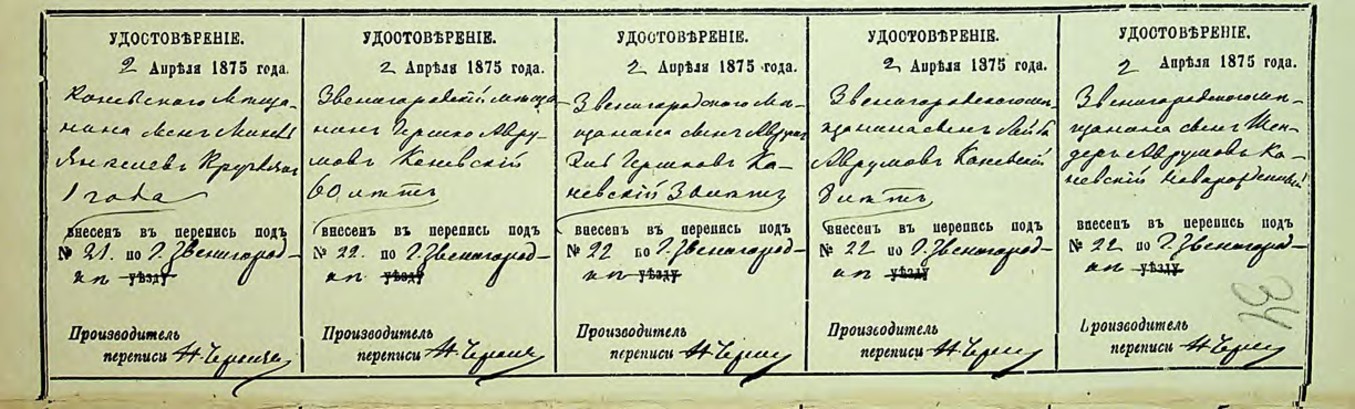 УДОСТОВѢРЕНІЕ.
2 Апрѣля 1875 года.
Каневского мѣща-
нина сынъ
Янкелевъ
1 года
внесенъ въ перепись подъ
№ 21. по Г. Звенигород-
уѣзду
Производитель
переписи
УДОСТОВѢРЕНІЕ.
2 Апрѣля 1875 года.
Звенигородскій мѣща-
нинъ Гершко Авру-
мовъ Каневскій
60 лѣтъ
внесенъ въ перепись подъ
№ 22. по Г. Звенигород-
уѣзду
Производитель
переписи
УДОСТОВѢРЕНІЕ.
2 Апрѣля 1875 года.
Звенигородского мѣ-
щанина сынъ Аврумъ
Гершковъ Ка-
невскій
внесенъ въ перепись подъ
№ 22 по Г. Звенигород-
уѣзду
Производитель
переписи
УДОСТОВѢРЕНІЕ.
2 Апрѣля 1875 года.
Звенигородского мѣ-
щанина сынъ Лейба
Аврумовъ Каневскій
8 лѣтъ
внесенъ въ перепись подъ
№ 22 по Г. Звенигород-
уѣзду
Производитель
переписи
УДОСТОВѢРЕНІЕ.
2 Апрѣля 1875 года.
Звенигородского мѣ-
щанина сынъ Шен-
деръ Аврумовъ Ка-
невскій новорожденный
внесенъ въ перепись подъ
№ 22 по Г. Звенигород-
уѣзду
Производитель
переписи
34